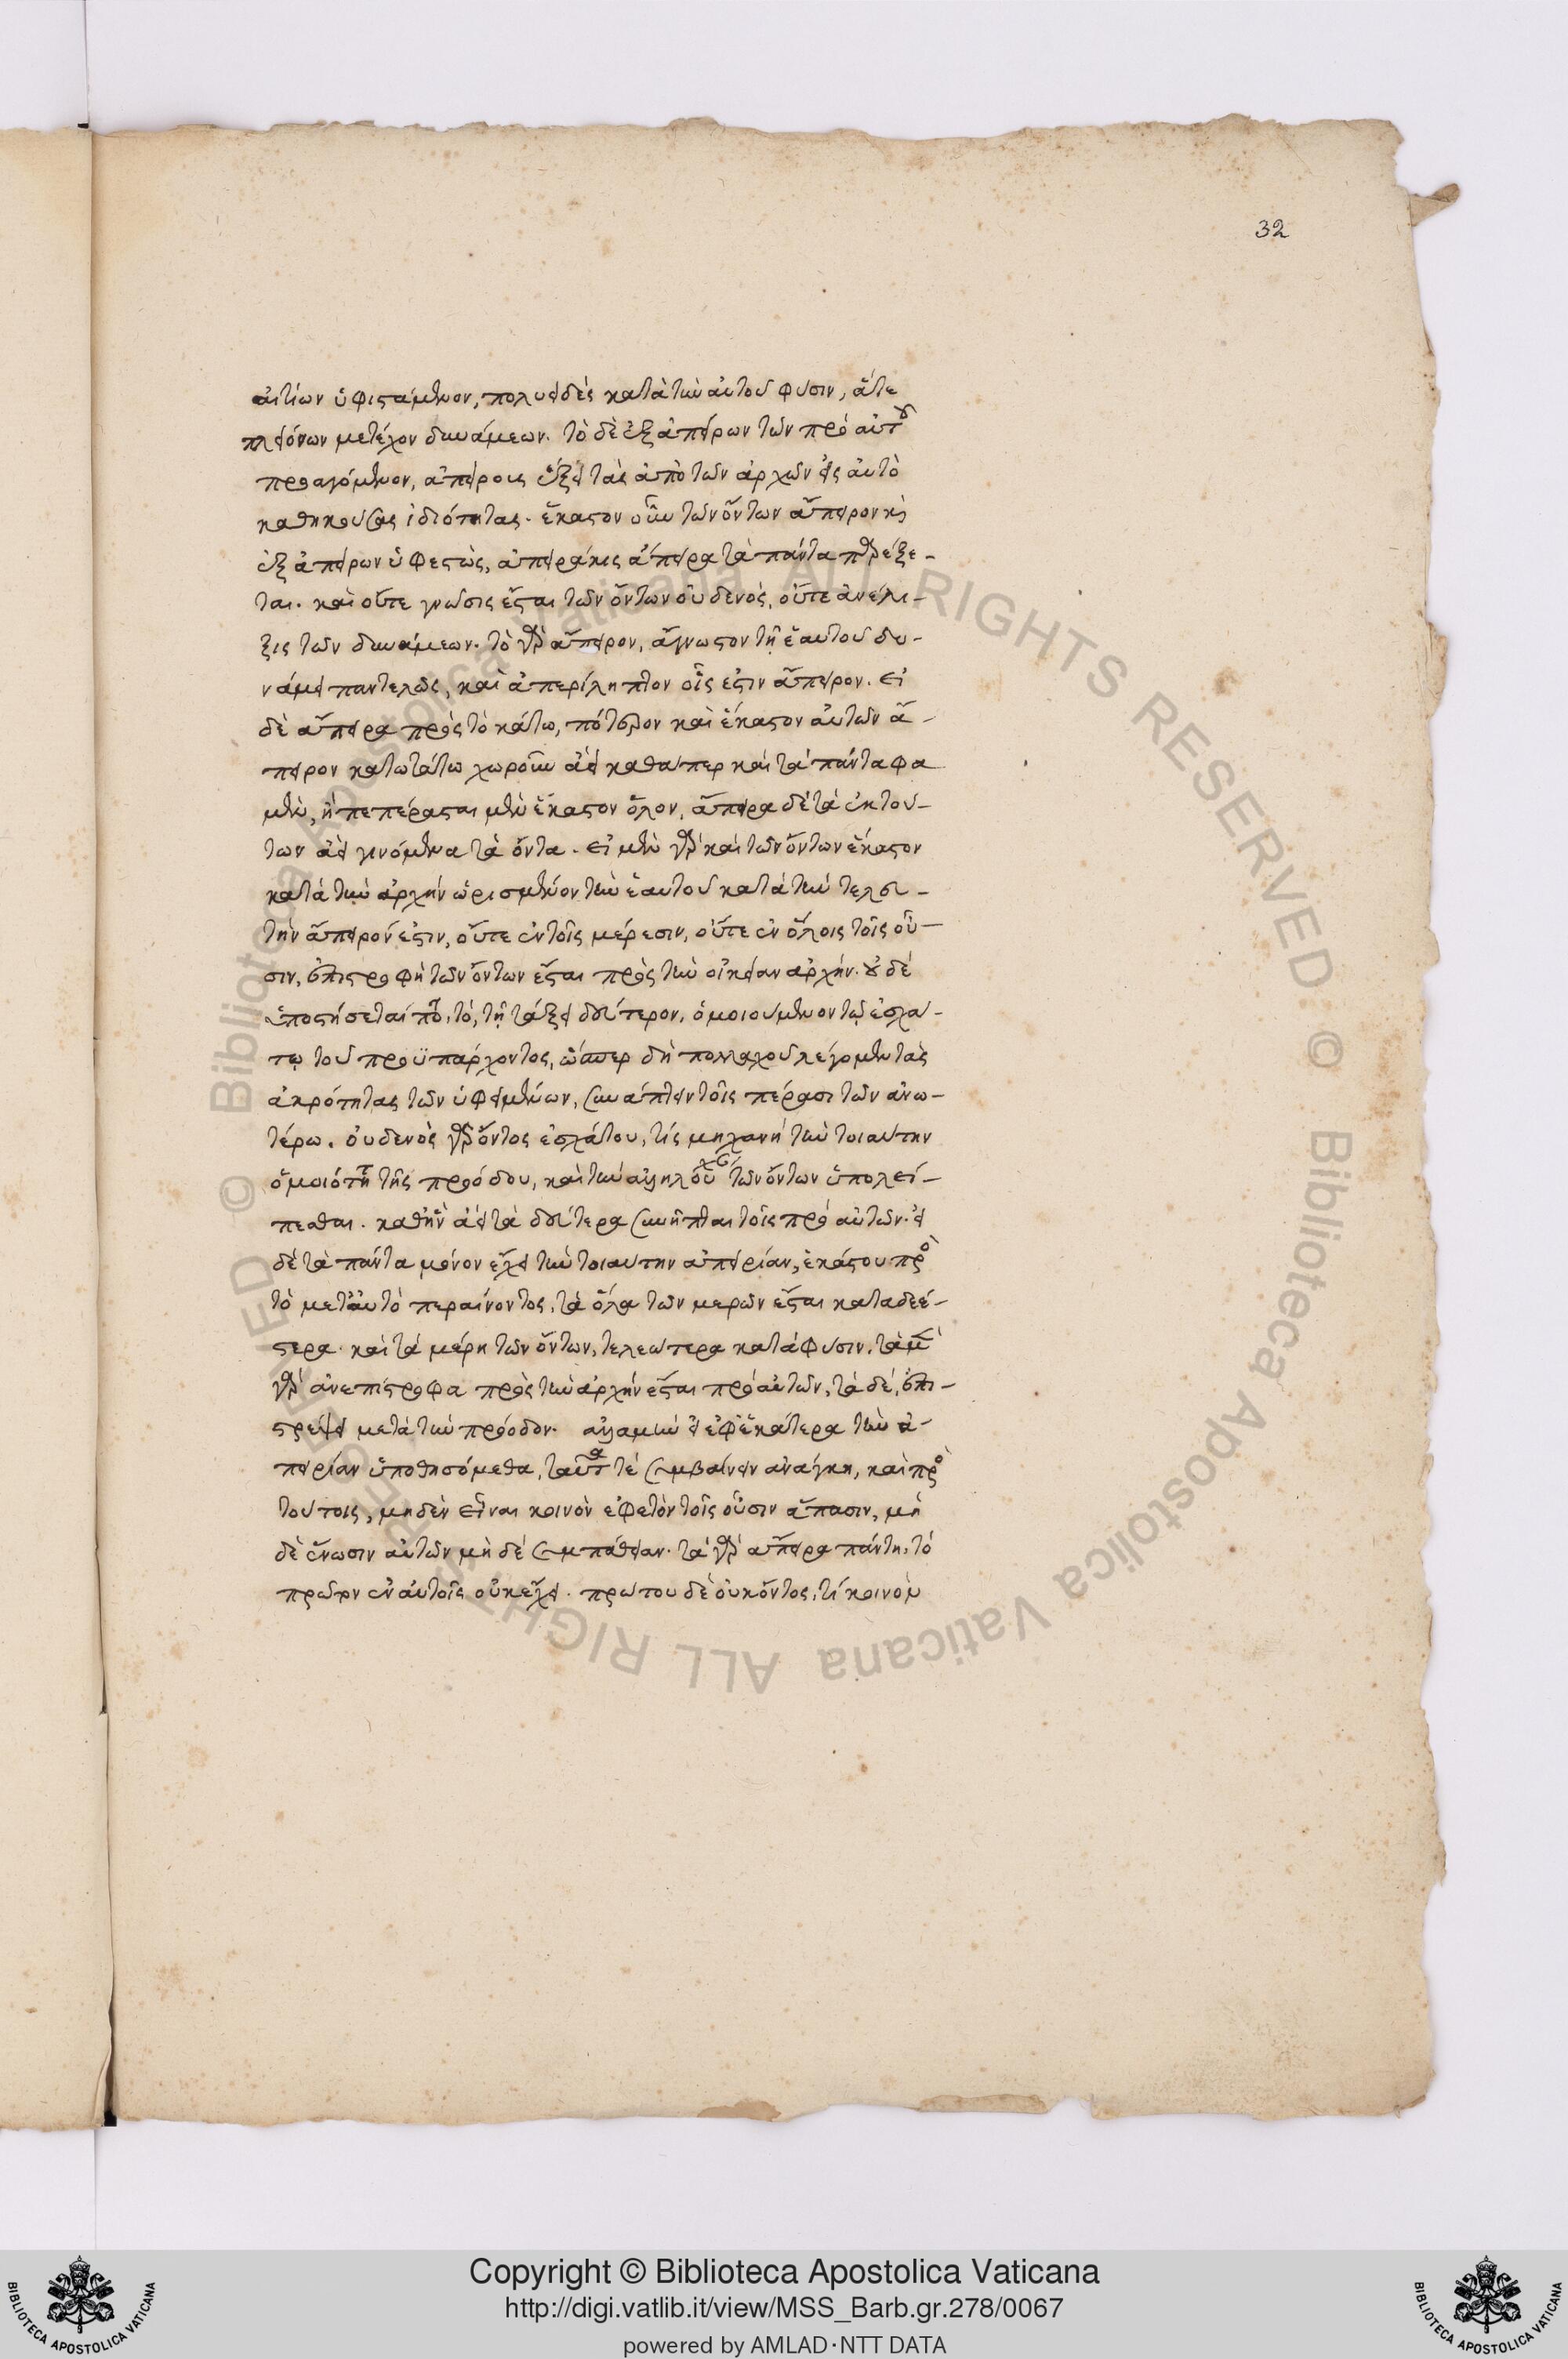 32
αἰτίων ὑφιστάμενον, πολυειδὲς κατὰ τὴν αὐτοῦ φύσιν, ἅτε
πλειόνων μετέχον δυνάμεων. τὸ δὲ ἐξ ἀπείρων τῶν πρὸ αὐτοῦ
προαγόμενον, ἀπείρους ἕξει τὰς ἀπὸ τῶν ἀρχῶν εἰς αὐτὸ
καθηκούσας ἰδιότητας. ἕκαστον οὖν τῶν ὄντων ἄπειρον καὶ
ἐξ ἀπείρων ὑφεστὼς, ἀπειράκις ἄπειρα τὰ πάντα παρέξε-
ται. καὶ οὔτε γνῶσις ἔσται τῶν ὄντων οὐδενὸς, οὔτε ἀνέλι-
ξις τῶν δυνάμεων. τὸ γὰρ ἄπειρον, ἄγνωστον τῇ ἑαυτοῦ δυ-
νάμει παντελῶς, καὶ ἀπερίληπτον οἷς ἐστιν ἄπειρον. εἰ
δὲ ἄπειρα πρὸς τὸ κάτω, πότερον καὶ ἕκαστον αὐτῶν ἄ-
πειρον κατωτάτω χωροῦν ἀεὶ καθάπερ καὶ τὰ πάντα φα
μὲν, ἢ πεπέρασται μὲν ἕκαστον ὅλον, ἄπειρα δὲ τὰ ἐκ τού-
των ἀεὶ γινόμενα τὰ ὄντα. εἰ μὲν γὰρ καὶ τῶν ὄντων ἕκαστον
κατὰ τὴν ἀρχὴν ὡρισμένον τὴν ἑαυτοῦ κατὰ τὴν τελευ-
τὴν ἄπειρόν ἐστιν, οὔτε ἐν τοῖς μέρεσιν, οὔτε ἐν ὅλοις τοῖς οὖ-
σιν, ἐπιστροφὴ τῶν ὄντων ἔσται πρὸς τὴν οἰκείαν ἀρχήν. οὐδέ
ὑποστήσεταί ποτε, τὸ, τῇ τάξει δεύτερον, ὁμοιούμενον τῷ ἐσχά-
τῳ τοῦ προϋπάρχοντος, ὥσπερ δὴ πολλαχοῦ λέγομεν τὰς
ἀκρότητας τῶν ὑφειμένων, συνάπτειν τοῖς πέρασι τῶν ἀνω-
τέρω. οὐδενὸς γὰρ ὄντος ἐσχάτου, τίς μηχανὴ τὴν τοιαύτην
ὁμοιότητα τῆς προόδου, καὶ τὴν ἀλληλουχίαν τῶν ὄντων ὑπολεί-
πεσθαι. καθ' ἣν ἀεὶ τὰ δεύτερα συνῆπται τοῖς πρὸ αὐτῶν. εἰ
δὲ τὰ πάντα μόνον ἔχει τὴν τοιαύτην ἀπειρίαν, ἑκάστου πρὸς
τὸ μετ' αὐτὸ περαίνοντος, τὰ ὅλα τῶν μερῶν ἔσται καταδεέ-
στερα. καὶ τὰ μέρη τῶν ὄντων, τελεώτερα κατὰ φύσιν. τὰ μὲν
γὰρ ἀνεπίστροφα πρὸς τὴν ἀρχὴν ἔσται πρὸ αὐτῶν, τὰ δέ, ἐπι-
στρέψει μετὰ τὴν πρόοδον. ἀλλὰ μὴν εἰ ἐφ' ἑκάτερα τὴν ἀ-
πειρίαν ὑποθησόμεθα, ταῦτά τε συμβαίνειν ἀνάγκη, καὶ πρὸς
τούτοις, μηδὲν εἶναι κοινὸν ἐφετὸν τοῖς οὖσιν ἅπασιν, μη
δὲ ἕνωσιν αὐτῶν μὴ δὲ συμπάθειαν. τὰ γὰρ ἄπειρα πάντῃ, τὸ
πρῶτον ἐν αὐτοῖς οὐκ ἔχει. πρώτου δὲ οὐκ ὄντος, τί κοινὸν
Copyright © Biblioteca Apostolica Vaticana
http://digi.vatlib.it/view/MSS_Barb.gr.278/0067
powered by AMLAD·NTT DATA
BIBLIOTECA APOSTOLICA VATICANA
BIBLIOTECA APOSTOLICA VATICANA
© Biblioteca Apostolica Vaticana ALL RIGHTS RESERVED © Biblioteca Apostolica Vaticana ALL RIGHTS RESERVED